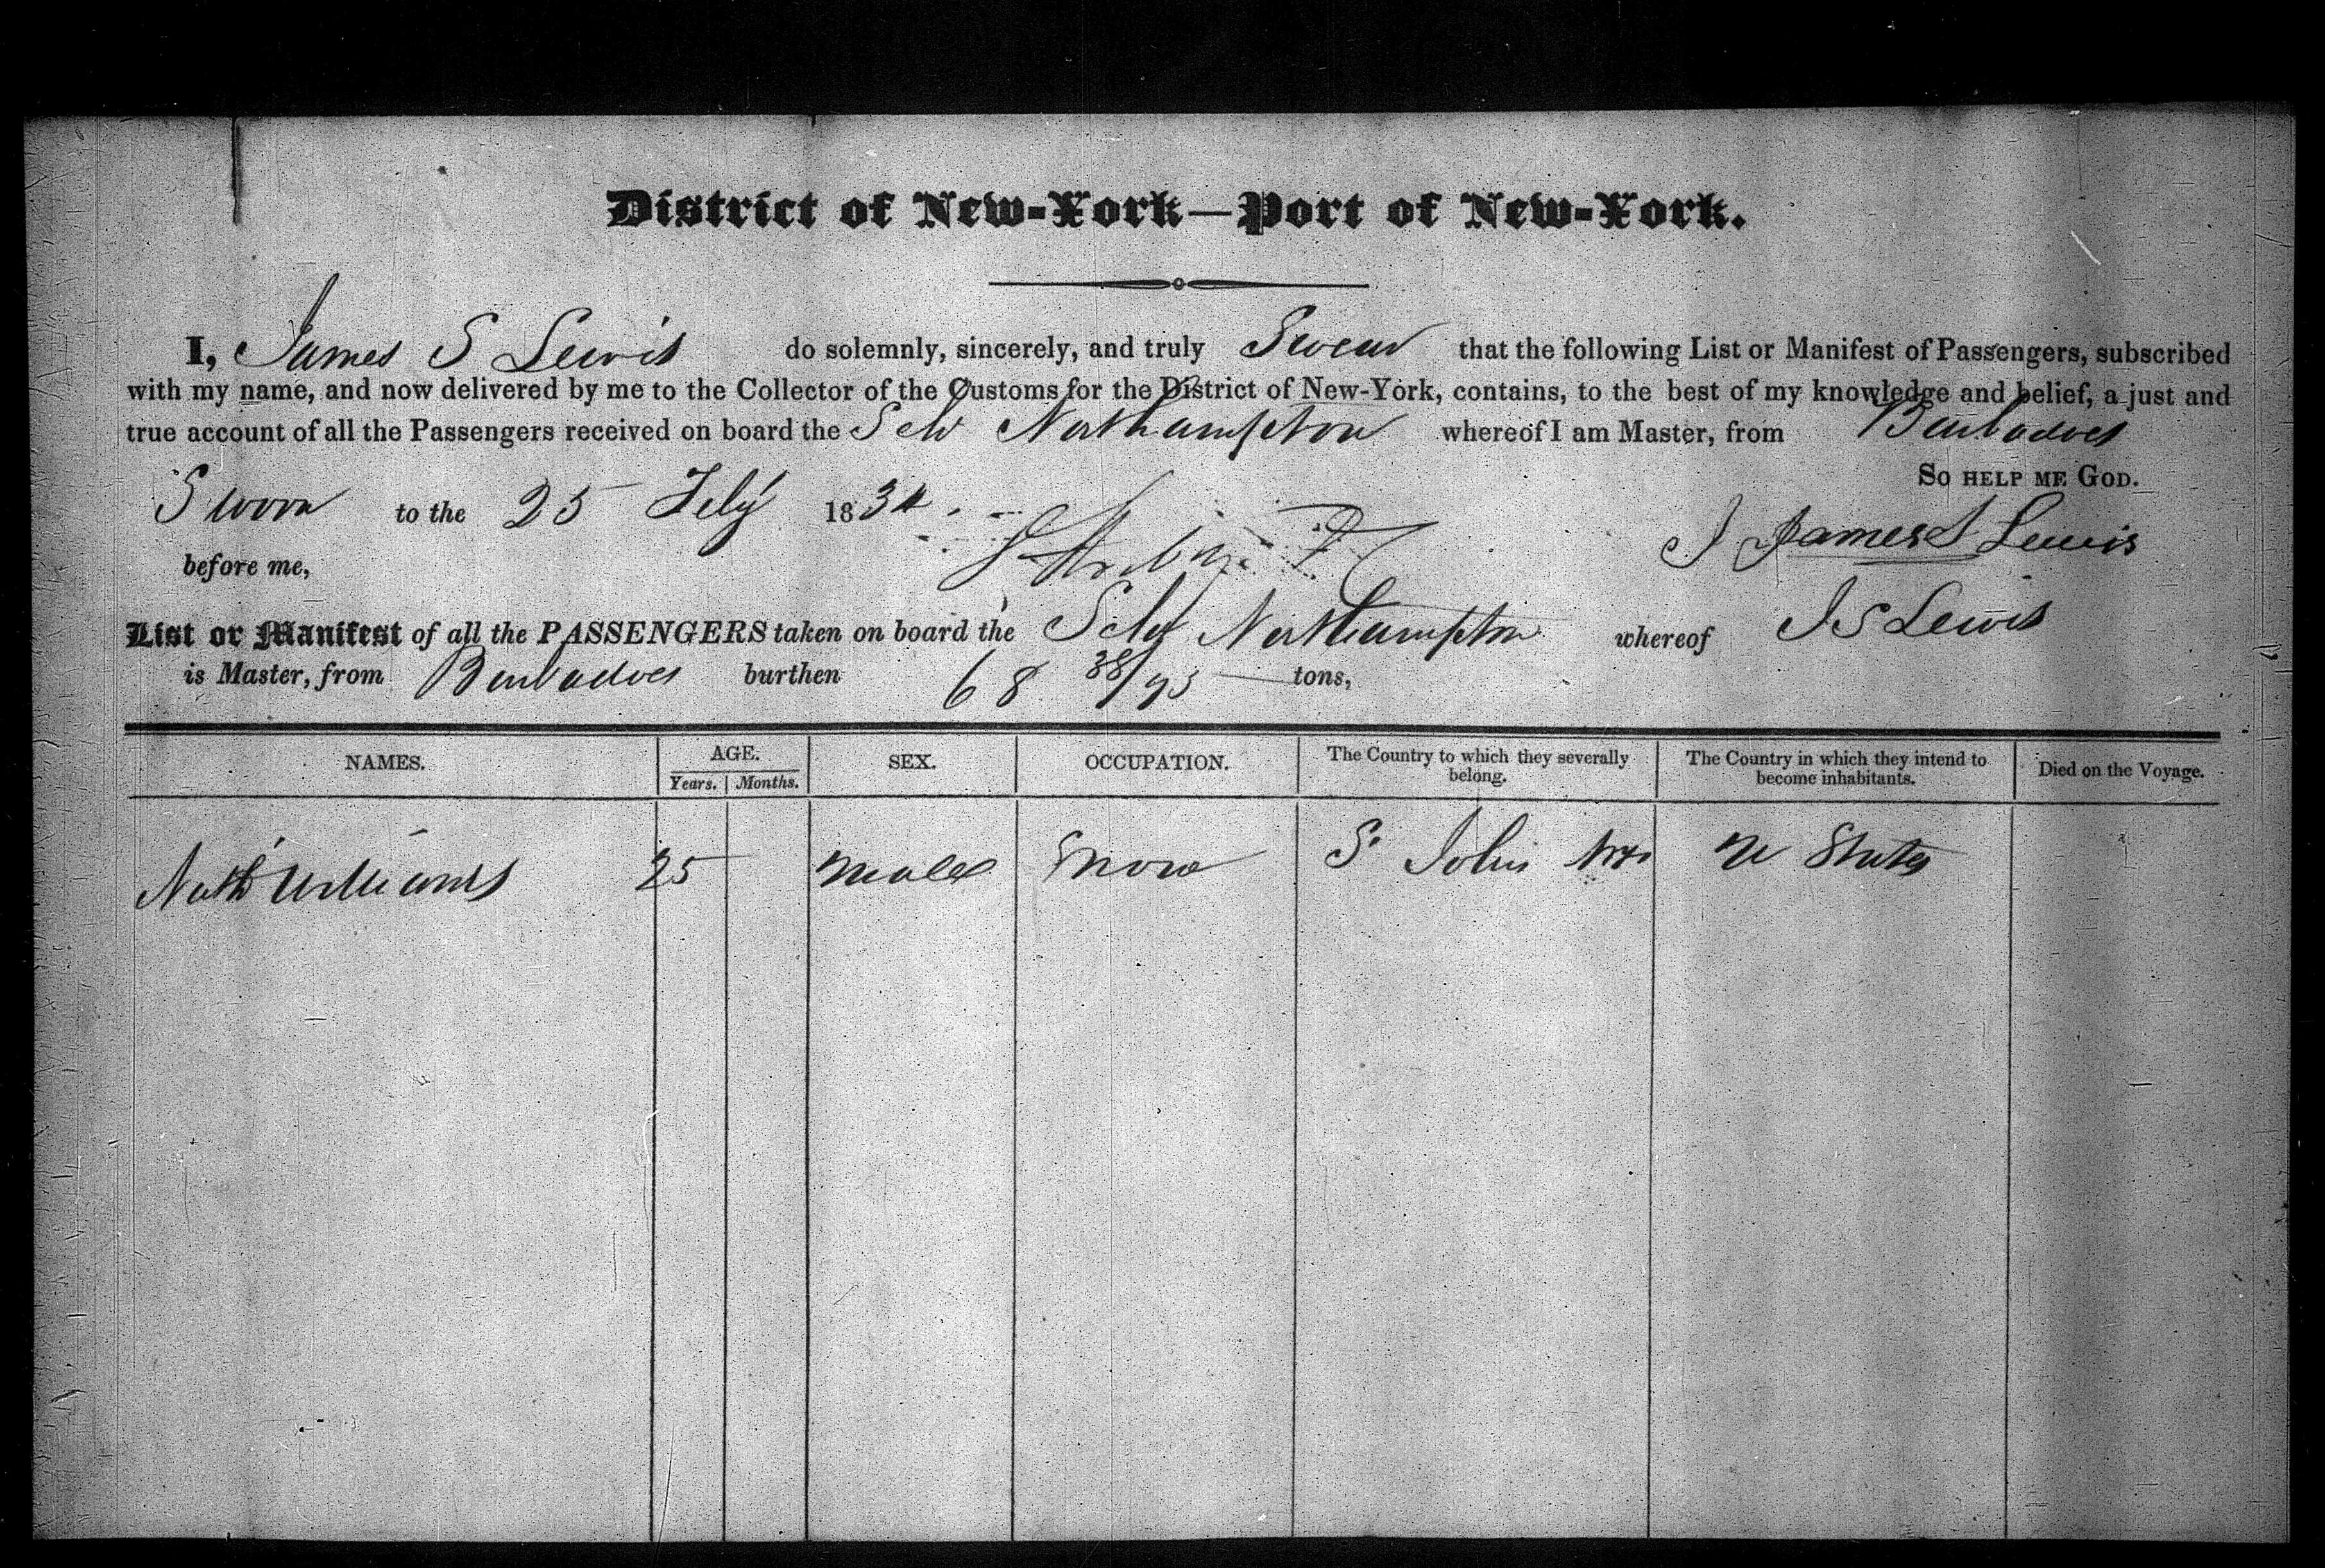 District of New-York—Port of New-York.
I, James S Lewis do solemnly, sincerely, and truly Swear that the following List or Manifest of Passengers, subscribed
with my name, and now delivered by me to the Collector of the Customs for the District of New-York, contains, to the best of my knowledge and belief, a just and
true account of all the Passengers received on board the Sch Northampton whereof I am Master, from Barbadoes
So help me God.
Sworn to the 25 July 1834
James S Lewis
before me,
List or Manifest of all the PASSENGERS taken on board the Schr Northampton whereof J S Lewis
is Master, from Barbadoes burthen 68 38/95 tons,
NAMES. AGE. SEX. OCCUPATION. The Country to which they severally belong. The Country in which they intend to become inhabitants. Died on the Voyage.
Years. Months.
Nath Williams 25 male None St John U States